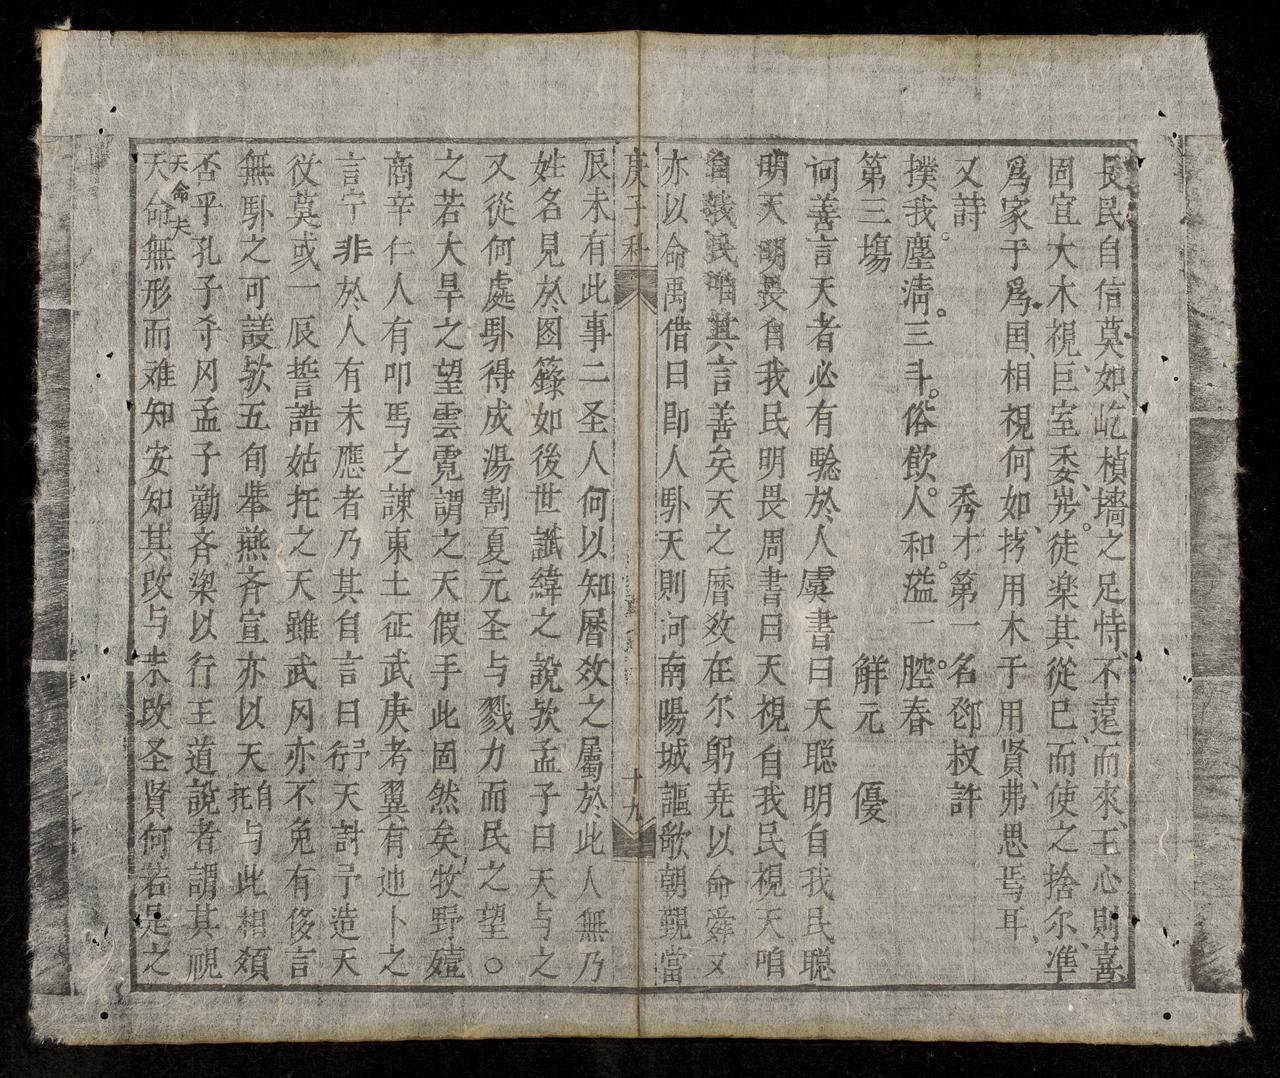 長民自信莫如屹楨墻之足恃不遠而來王心則喜
固宜大木視巨室委岁徒楽其從已而使之捨尔準
爲家于爲国相視何如㧣用木于用賢弗思焉耳
又詩 秀才第一名鄧叔許
撲我塵清三斗俗飲人和溢一腔春
第三塲 解元 優
问善言天者必有騐於人虞書曰天聪明自我民聪
明天明畏自我民明畏周書曰天視自我民視天咱
自我民咱其言善矣天之曆效在尔躬尭以命舜又
亦以命禹借曰即人卧天則河南陽城謳歌朝覲當
庚子科 十九
辰未有此事二圣人何以知曆效之屬於此人無乃
姓名見於图籙如後世讖緯之說欤孟子曰天与之
又從何處卧得成湯割夏元圣与戮力而民之望○
之若大旱之望雲霓謂之天假手此固然矣牧野殪
商辛仁人有叩馬之諫東土征武庚考翼有迪卜之
言宁非於人有未應者乃其自言曰予行天討予造天
役莫或一辰誓誥姑托之天雖武冈亦不免有侈言
無卧之可議欤五旬举燕斉宣亦以天自托与此相類
否乎孔子夺冈孟子勸斉梁以行王道說者謂其視
天命天命夫無形而难知安知其改与未改圣賢何若是之